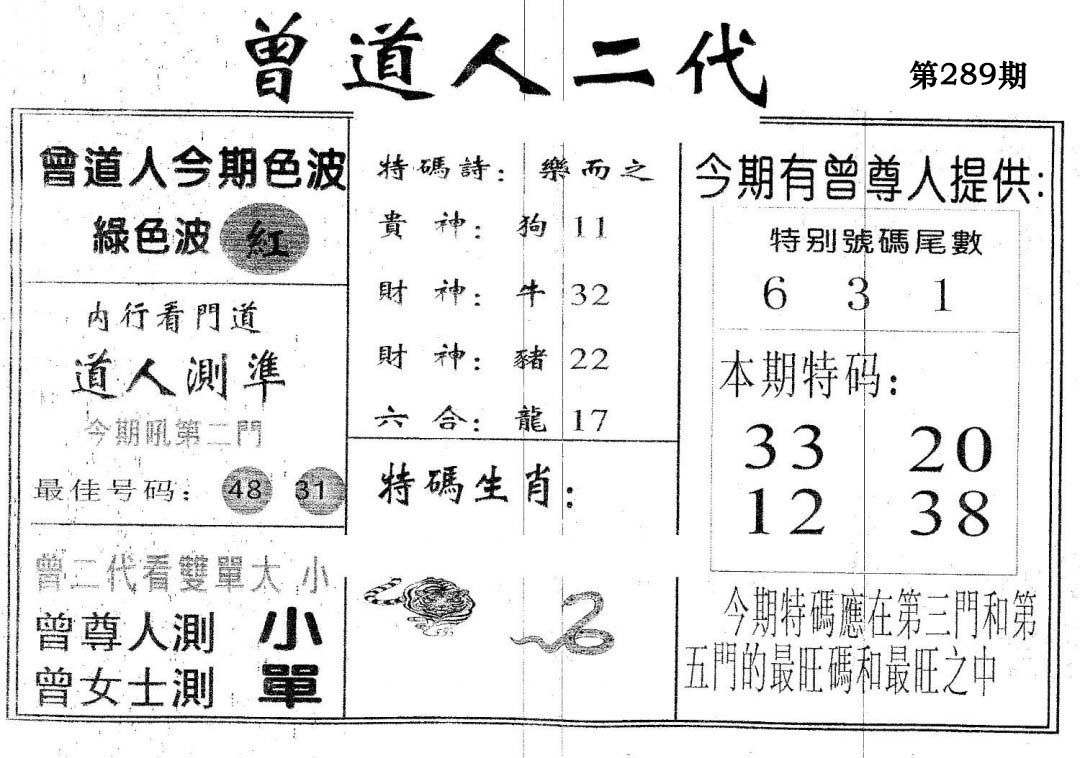 曾道人二代
第289期
曾道人今期色波
綠色波 紅
內行看門道
道人測準
今期吼第二門
最佳号码： 48 31
曾二代看雙單大 小
曾尊人測 小
曾女士測 單
特碼詩：樂而之
貴神：狗 11
財神：牛 32
財神：豬 22
六合：龍 17
特碼生肖：
今期有曾尊人提供：
特別號碼尾數
6 3 1
本期特码：
33 20
12 38
今期特碼應在第三門和第
五門的最旺碼和最旺之中